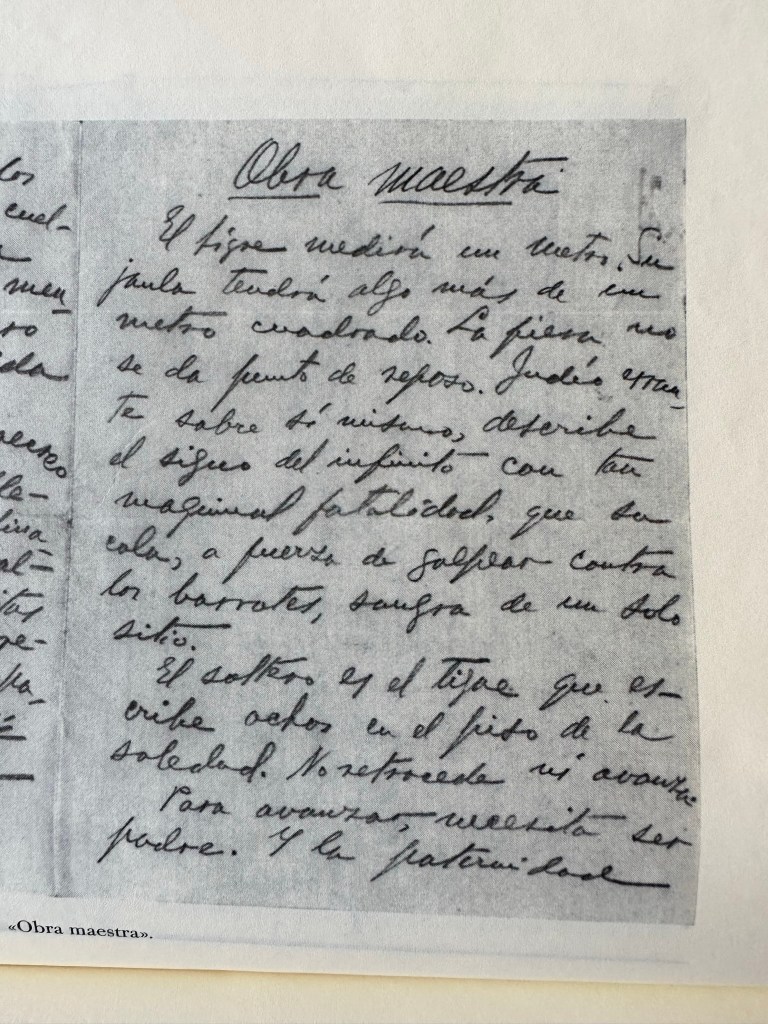 los
cuel-
men-
ro
ida
fle-
al-
itas
pe-
pa-
Obra maestra
El tigre medirá un metro. Su
jaula tendrá algo más de un
metro cuadrado. La fiera no
se da punto de reposo. Judío erran-
te sobre sí mismo, describe
el signo del infinito con tan
maquinal fatalidad, que su
cola, a fuerza de golpear contra
los barrotes, sangra de un solo
sitio.
El soltero es el tigre que es-
cribe ochos en el piso de la
soledad. No retrocede ni avanza.
Para avanzar, necesita ser
padre. Y la paternidad
«Obra maestra».